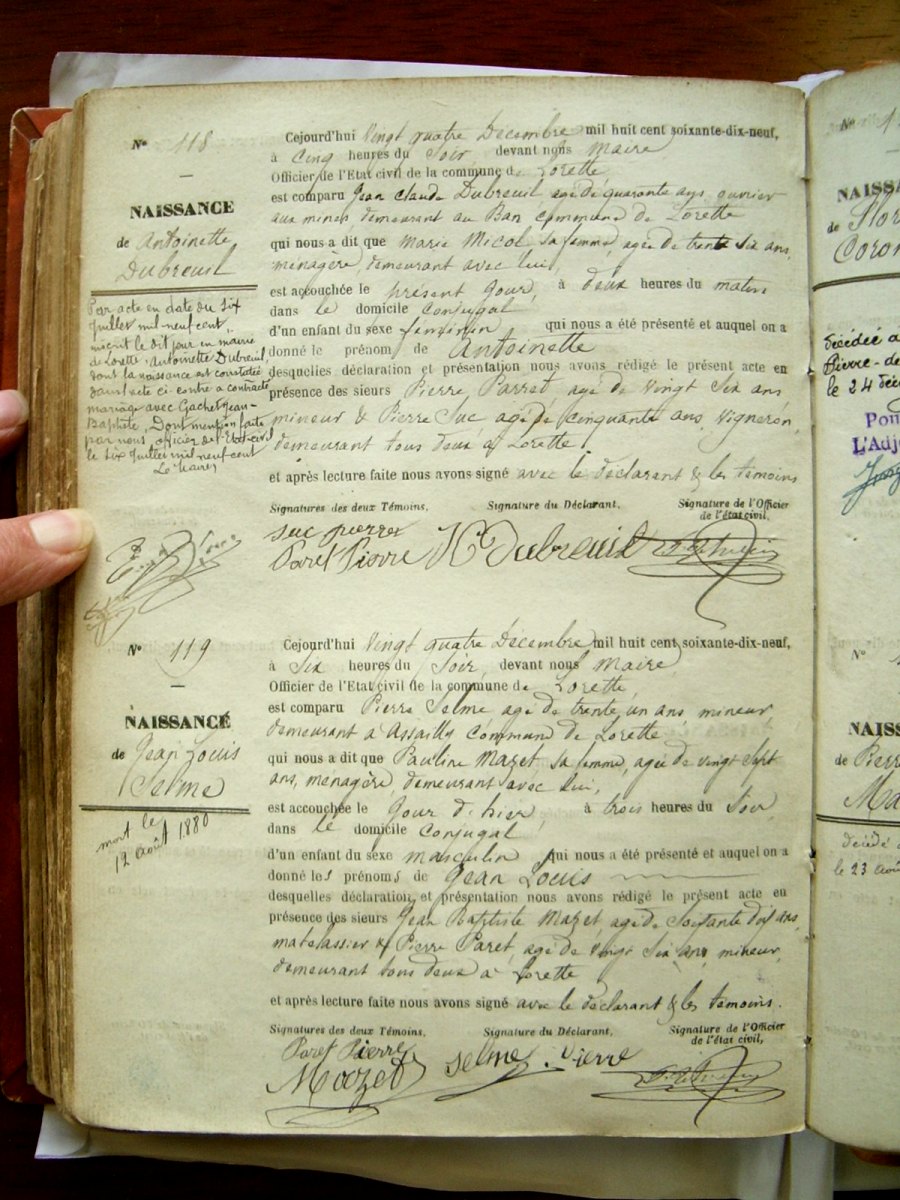 N° 118
NAISSANCE
de Antoinette
Dubreuil
Par acte en date du six
Juillet mil neuf cent,
inscrit le dit jour en mairie
de Lorette, Antoinette Dubreuil,
dont la naissance est constatée
dans l'acte ci-contre a contracté
mariage avec Gachet Jean-
Baptiste, Dont mention faite
par nous, officier de l'Etat-civil
le six Juillet mil neuf cent
Le Maire
Cejourd'hui Vingt quatre Décembre mil huit cent soixante-dix-neuf,
à Cinq heures du Soir, devant nous Maire
Officier de l'Etat civil de la commune de Lorette
est comparu Jean Claude Dubreuil, age de quarante ans, ouvrier
aux mines, demeurant au Ban commune de Lorette
qui nous a dit que Marie Micol, sa femme, agée de trente six ans,
menagère, demeurant avec lui,
est accouchée le présent jour, à deux heures du matin
dans le domicile Conjugal
d'un enfant du sexe feminin qui nous a été présenté et auquel on a
donné le prénom de Antoinette
desquelles déclaration et présentation nous avons rédigé le présent acte en
présence des sieurs Pierre Parret, age de vingt six ans
mineur & Pierre Suc, agé de cinquante ans, vigneron,
demeurant tous deux à Lorette.
et après lecture faite nous avons signé avec le déclarant & les témoins
Signatures des deux Témoins, Signature du Déclarant, Signature de l'Officier
de l'état civil,
Suc pierre
Paret Pierre Dubreuil
N° 119
NAISSANCE
de Jean Louis
Selme
mort le
12 août 1880
Cejourd'hui Vingt quatre Décembre mil huit cent soixante-dix-neuf,
à Six heures du Soir, devant nous Maire
Officier de l'Etat civil de la commune de Lorette,
est comparu Pierre Selme, age de trente un ans, mineur,
demeurant à Assailly Commune de Lorette
qui nous a dit que Pauline Mazet, sa femme, agée de vingt sept
ans, menagère, demeurant avec lui,
est accouchée le Jour d'hier, à trois heures du Soir
dans le domicile Conjugal
d'un enfant du sexe masculin qui nous a été présenté et auquel on a
donné les prénoms de Jean Louis
desquelles déclaration et présentation nous avons rédigé le présent acte en
présence des sieurs Jean Baptiste Mazet, age de Soixante dix ans,
matelassier & Pierre Paret, age de vingt six ans, mineur,
demeurant tous deux à Lorette
et après lecture faite nous avons signé avec le déclarant & les témoins.
Signatures des deux Témoins, Signature du Déclarant, Signature de l'Officier
de l'état civil,
Paret Pierre
Mozet Selme Pierre
N° 1
NAISSA
de Flor
Coron
décédée à
Pierre-de
le 24 déc
Pou
L'Adj
N°
NAISS
de Pierr
Ma
décédé
le 23 août